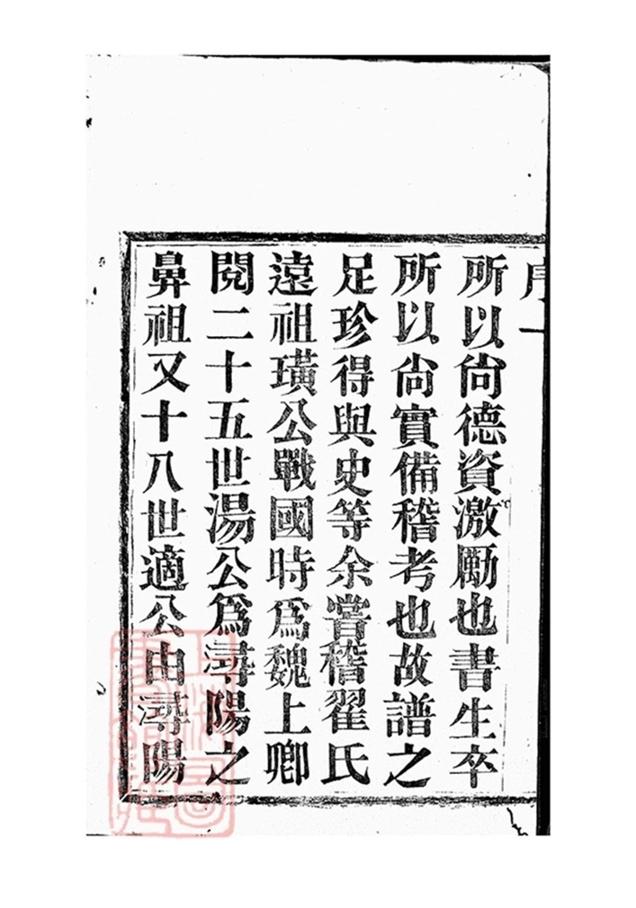 序一
所以尙德資激勵也書生卒
所以尙實備稽考也故譜之
足珍得與史等余嘗稽翟氏
遠祖璜公戰國時爲魏上卿
閱二十五世湯公爲潯陽之
鼻祖又十八世適公由潯陽